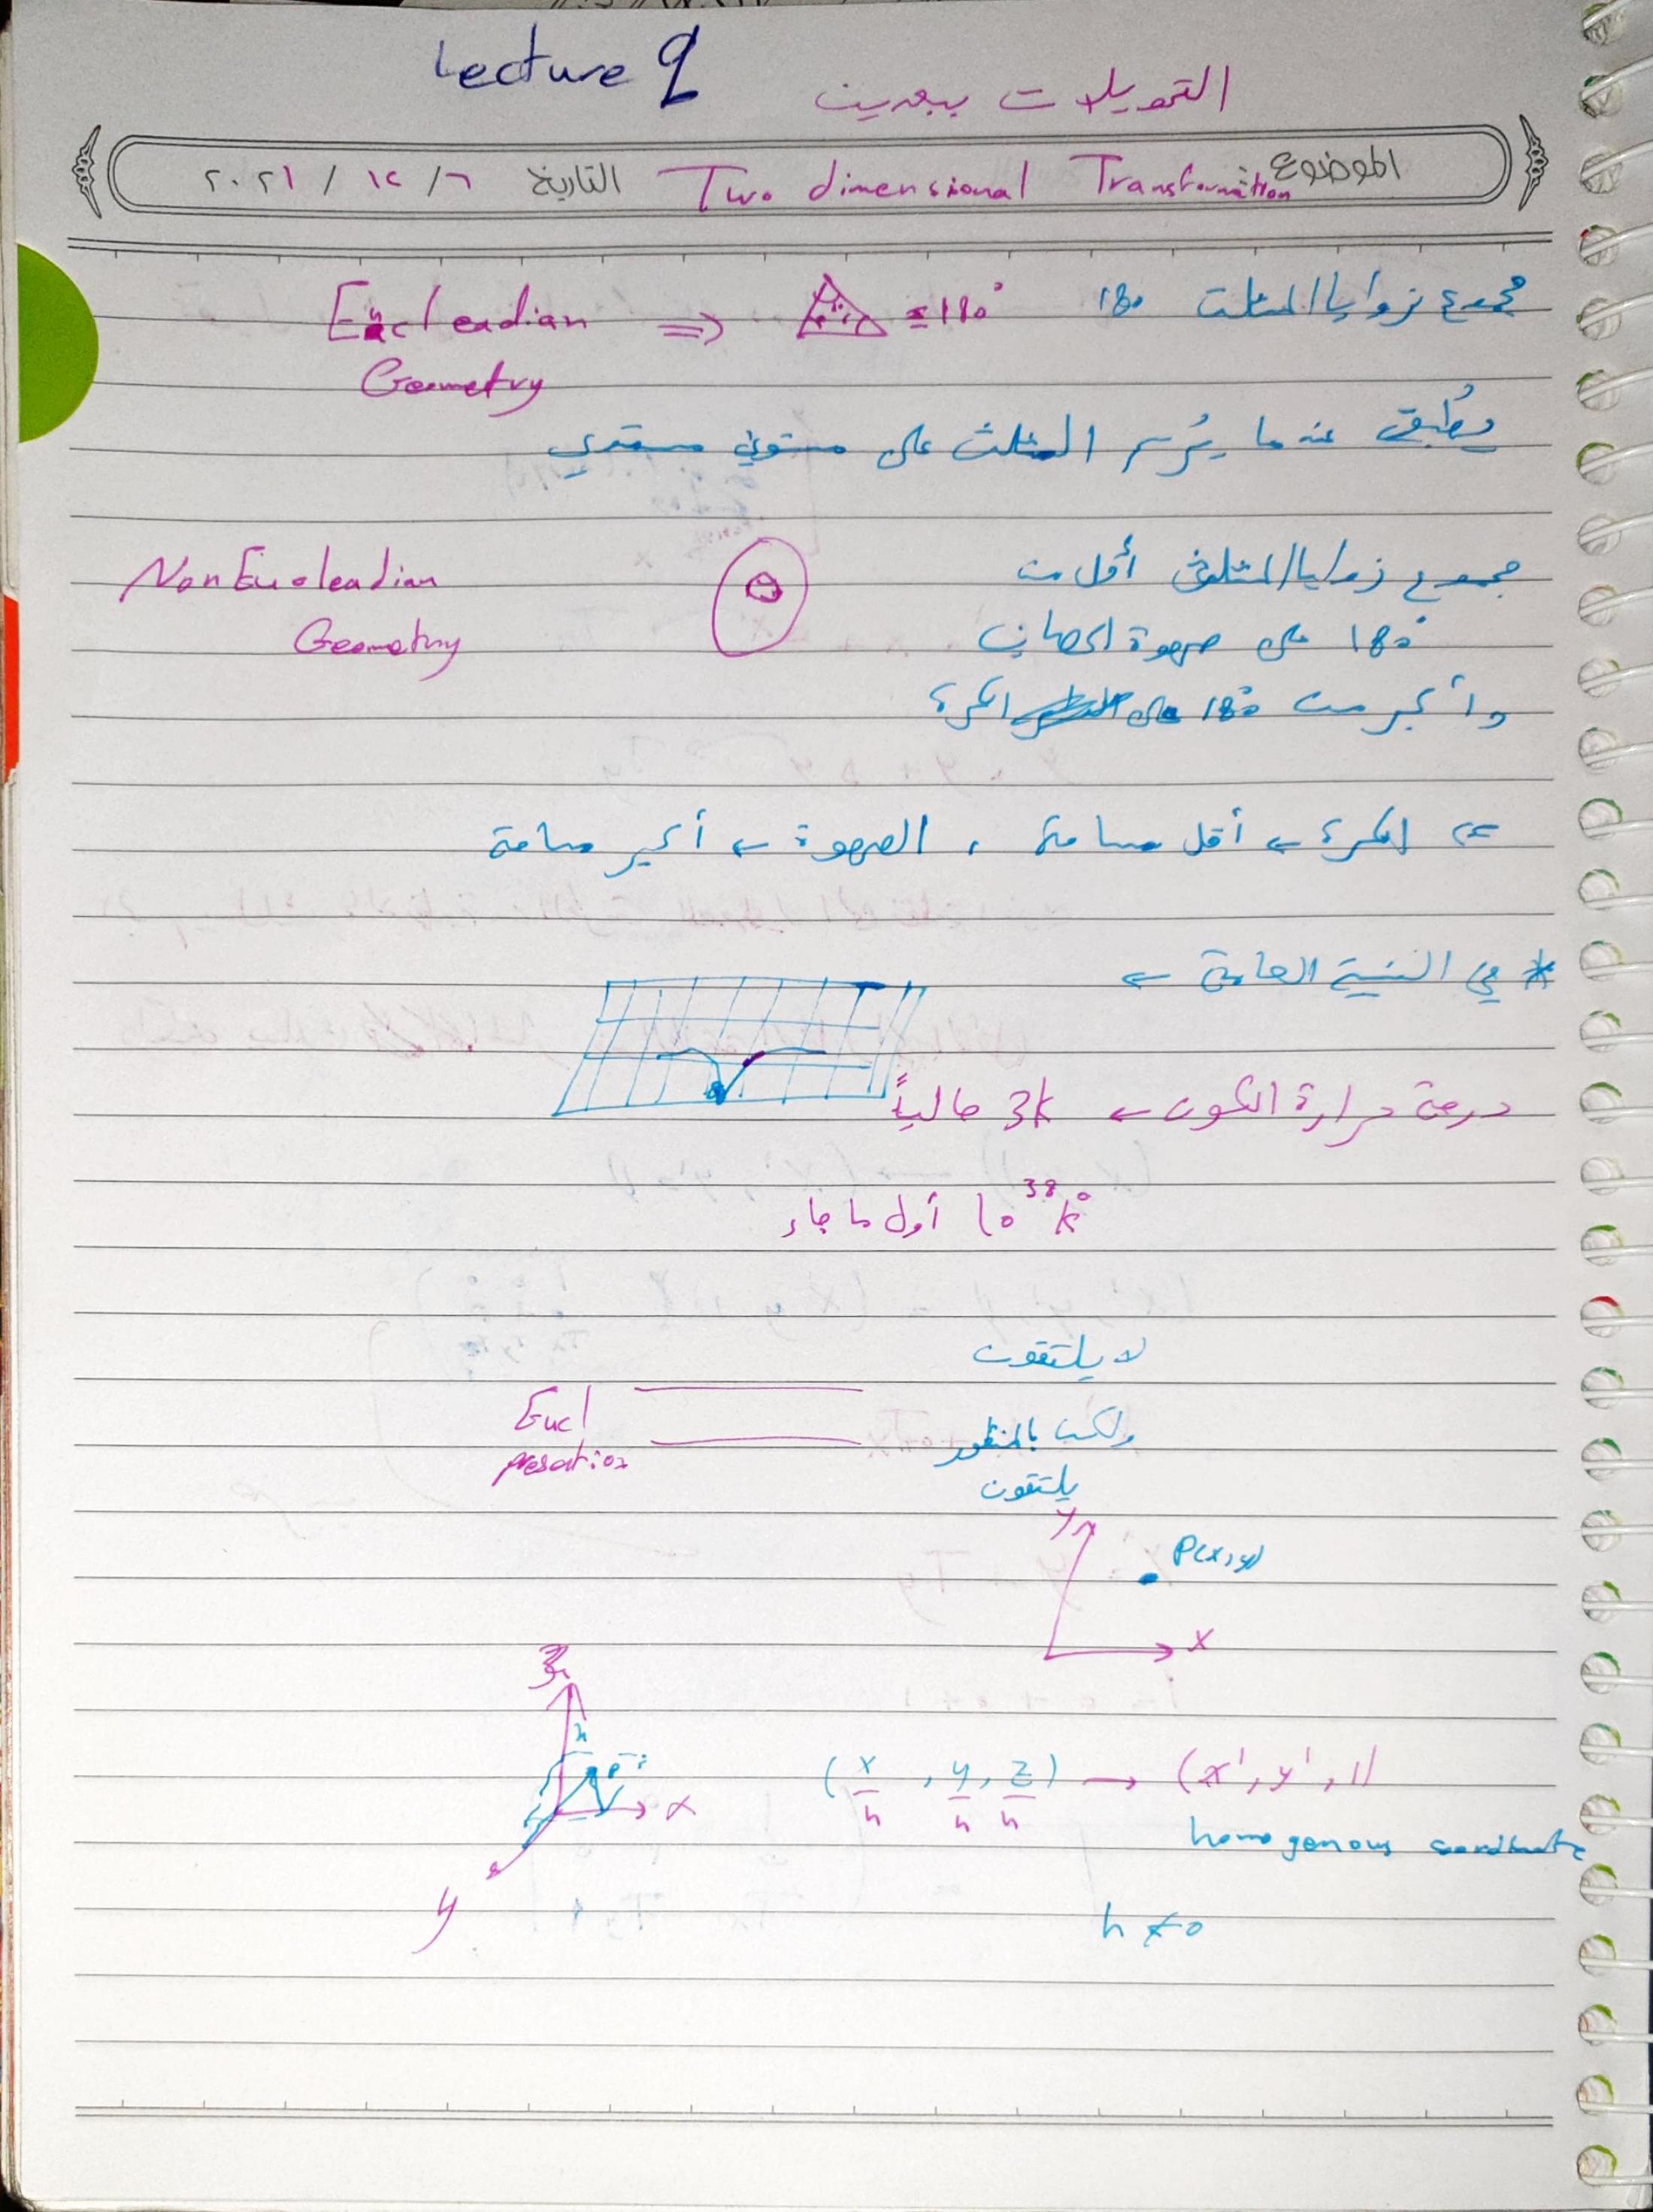 Lecture 9
التحويلات ببعدين
الموضوع: Two dimensional Transformation التاريخ ٢٠٢١ / ١٢ / ٦
Eucleadian Geometry ⇒ = 180° مجموع زوايا المثلث 180
يُطبق عندما يُرسم المثلث على مستوي
Non Eucleadian Geometry
مجموع زوايا المثلث أقل من
180° على صهوة الحصان
وأكبر من 180° على الكرة
الكرة ← أقل مساحة ، الصهوة ← أكبر مساحة
* في النسبية العامة ←
درجة حرارة الكون ← 3k حالياً
10³⁸ k° أول ما جاء
لا يلتقون
Eucl
ولكن بالمنظور
يلتقون
y
P(x,y)
x
z
h
x
y
(x/h, y/h, z/h) → (x', y', 1)
homogenous
h ≠ 0